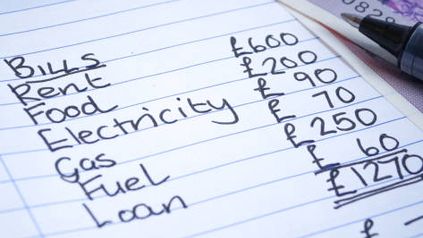 Bills
Rent £600
Food £200
Electricity £ 90
Gas £ 70
Fuel £250
Loan £ 60
£1270
£